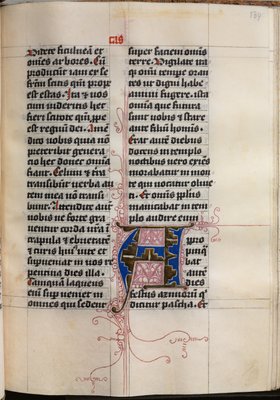 Videte ficulneā et
om̄es arbores. Cū
producūt iam ex se
fr̄m scitis qm̄ prope
est estas. Ita et vos
cum videritis hec
fieri scitote qm̄ ꝓpe
est regnū dei. Amē
dico vobis quia nō
preteribit genera
tio hec donec om̄ia
fiant. Celum et tr̄a
transibūt verba au
tem mea nō transi
bunt. Attendite aūt
vobis ne forte gra
uentur corda vr̄a ī
crapula et ebrietate
et curis huiꝰ vite et
supueniat in vos re
pentina dies illa.
Tanquam laqueus
eni supueniet in
omnes qui sedent
super faciem om̄is
terre. Vigilate ita
qꝫ om̄i tempe oran
tes ut digni habe
amini fugere ista
om̄ia que futura
sunt uobis ⁊ stare
ante filiuꝫ homīs.
Erat autē diebus
docens in templo
noctibus vero exiēs
morabatur in mon
te qui uocatur oliue
ti. Et om̄is ppl̄us
manicabat in tem
plo audire eum
Appro
pinq̄
bat
autē
dies
festus azimorū q̄
dicitur pascha. Et